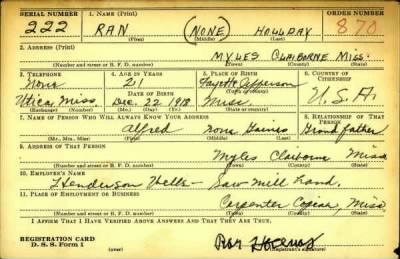 SERIAL NUMBER 1. NAME (Print) ORDER NUMBER
222 RAN (NONE) HOLLDAY 870
(First) (Middle) (Last)
2. ADDRESS (Print)
MYLES CLAIBORNE MISS.
(Number and street or R. F. D. number) (Town) (County) (State)
3. TELEPHONE 4. AGE IN YEARS 5. PLACE OF BIRTH 6. COUNTRY OF CITIZENSHIP
None 21 Fayette Jefferson
Utica, Miss. DATE OF BIRTH (Town or county)
Dec. 22 1918 Miss. U.S.A.
(Exchange) (Number) (Mo.) (Day) (Yr.) (State or country)
7. NAME OF PERSON WHO WILL ALWAYS KNOW YOUR ADDRESS 8. RELATIONSHIP OF THAT PERSON
Alfred none Gaines Grandfather
(Mr., Mrs., Miss) (First) (Middle) (Last)
9. ADDRESS OF THAT PERSON
Myles Claiborne Miss
(Number and street or R. F. D. number) (Town) (County) (State)
10. EMPLOYER'S NAME
Henderson Wells- Saw Mill hand.
11. PLACE OF EMPLOYMENT OR BUSINESS
Carpenter Copiah, Miss
(Number and street or R. F. D. number) (Town) (County) (State)
I AFFIRM THAT I HAVE VERIFIED ABOVE ANSWERS AND THAT THEY ARE TRUE.
REGISTRATION CARD
D. S. S. Form 1 (over) (Registrant's signature)